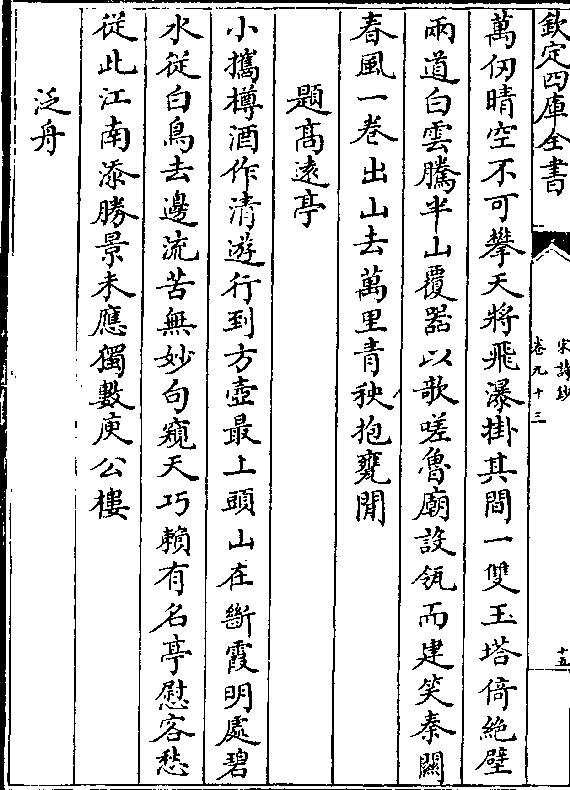 欽定四庫全書
宋詩鈔
卷九十三
十五
萬仞晴空不可攀天將飛瀑掛其間一雙玉塔倚絶壁
兩道白雲騰半山覆器以歌嗟魯廟設瓴而建笑秦關
春風一卷出山去萬里青秧抱甕閒
題高遠亭
小攜樽酒作清遊行到方壺最上頭山在斷霞明處碧
水從白鳥去邊流苦無妙句窺天巧賴有名亭慰客愁
從此江南添勝景未應獨數庾公樓
泛舟